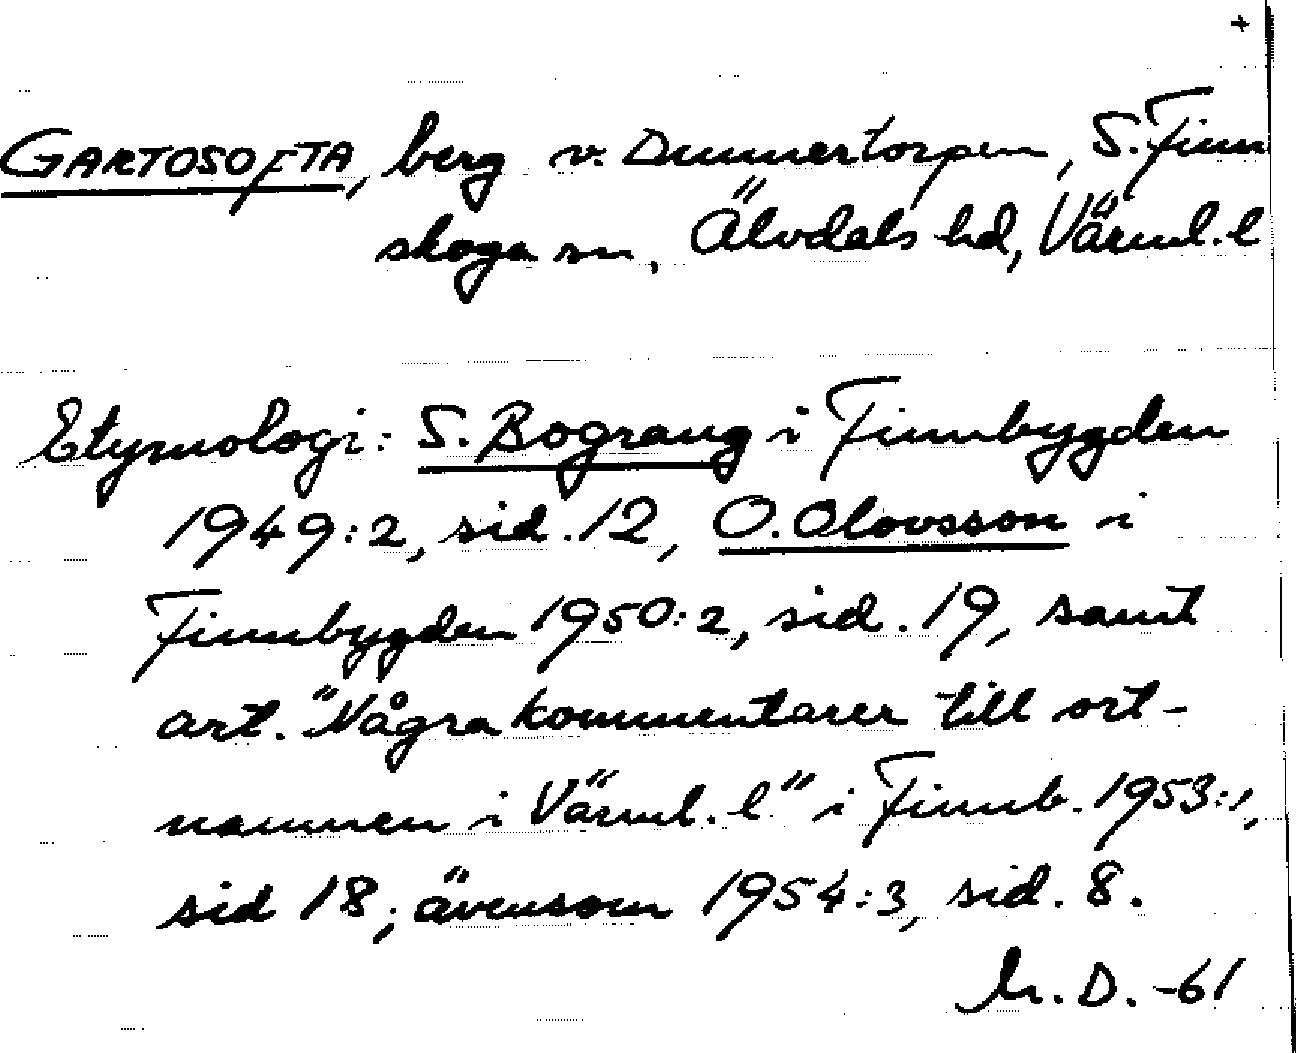 +
GARTOSOFTA, berg v. Dummertorpen, S. Finn
skoga sn, Älvdals hd, Värml. l
Etymologi: S. Bograng i Finnbygden
1949:2, sid. 12, O. Olovsson i
Finnbygden 1950:2, sid. 19, samt
art. "Några kommentarer till ort-
namnen i Värml. l" i Finnb. 1953:1,
sid 18; ävensom 1954:3, sid. 8.
D. -61